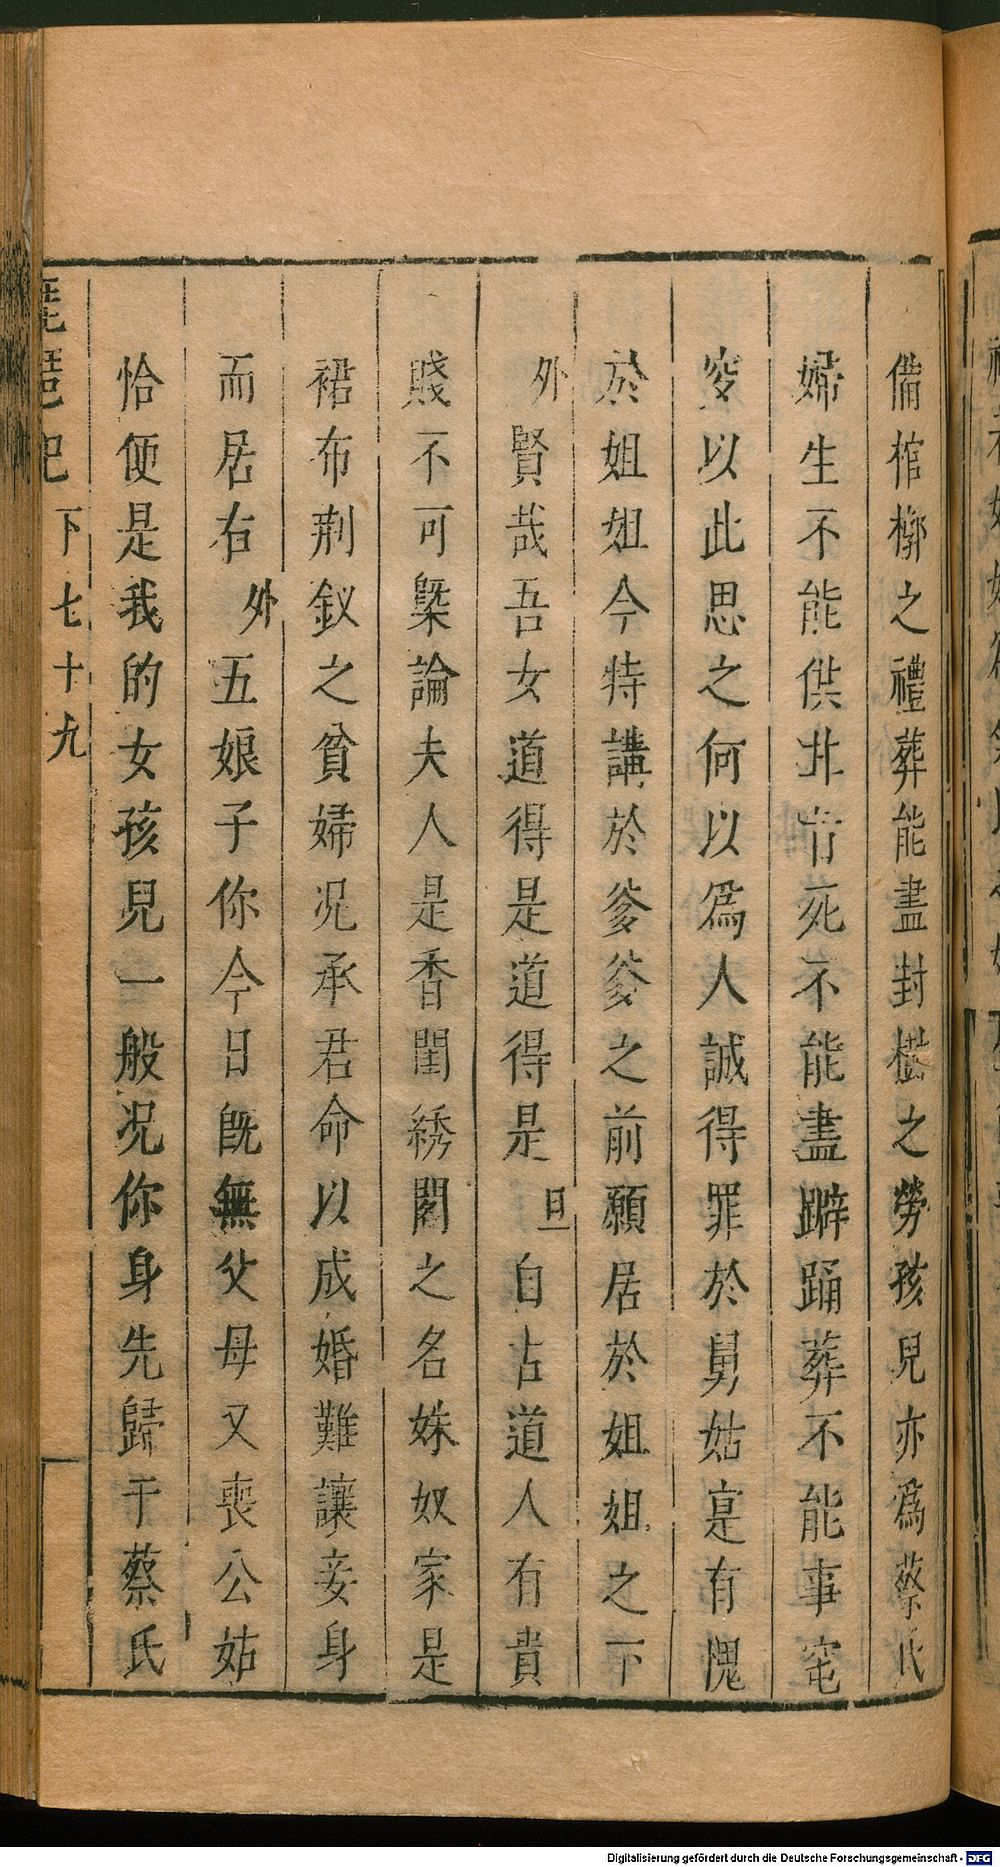 備棺槨之禮葬能盡封樹之勞孩兒亦爲蔡氏
婦生不能供井臼死不能盡躃踊葬不能事窀
窆以此思之何以爲人誠得罪於舅姑寔有愧
於姐姐今特講於爹爹之前願居於姐姐之下
外賢哉吾女道得是道得是旦自古道人有貴
賤不可槩論夫人是香閨綉閣之名姝奴家是
裙布荆釵之貧婦况承君命以成婚難讓妾身
而居右外五娘子你今日旣無父母又喪公姑
恰便是我的女孩兒一般况你身先歸于蔡氏
琵琶記 下七十九
Digitalisierung gefördert durch die Deutsche Forschungsgemeinschaft - DFG